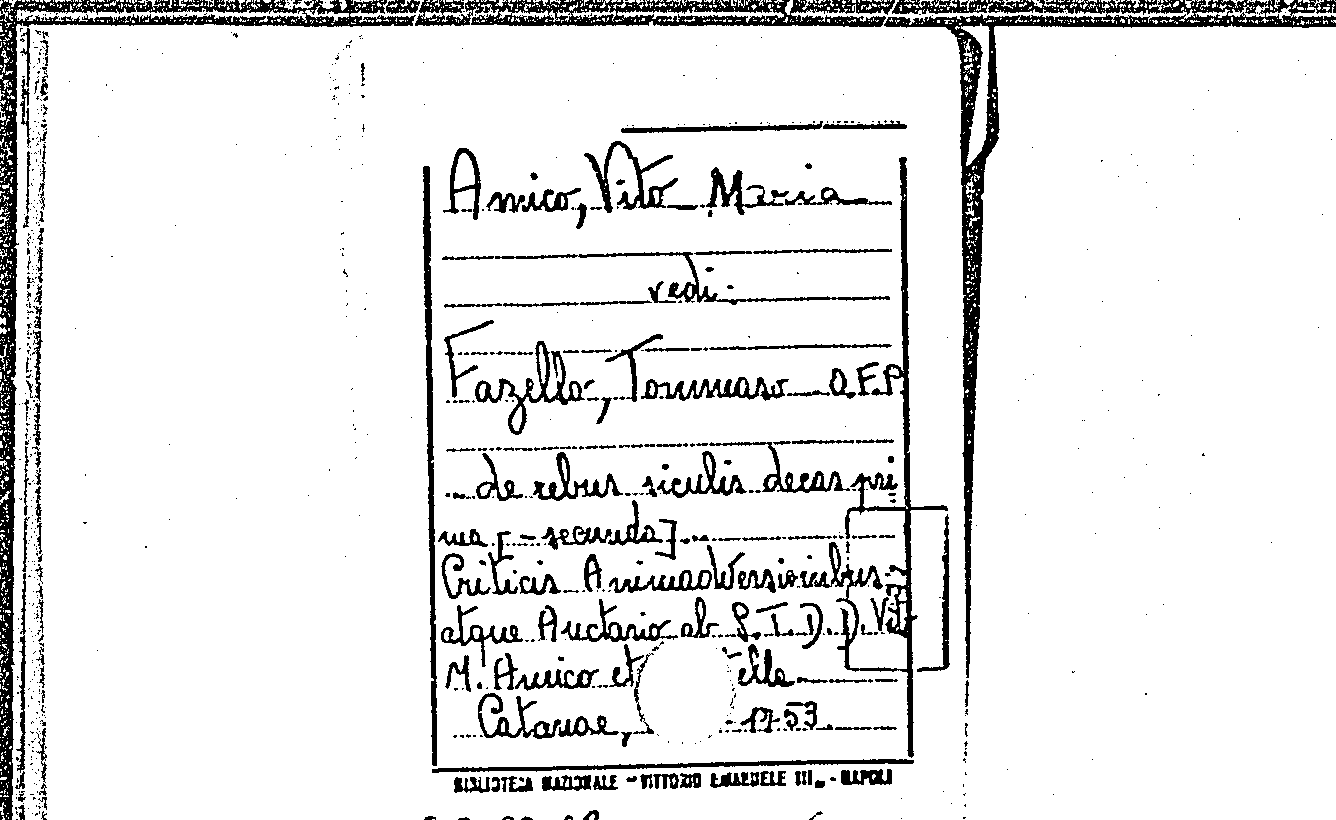 Amico, Vito Maria
vedi:
Fazello, Tommaso O.F.P.
... de rebus siculis decas pri
ma [-secunda]...
Criticis Animadversionibus
atque Auctario ab S.T.D.D. Vito
M. Amico et ella
Catanae, 1753.
BIBLIOTECA NAZIONALE - VITTORIO EMANUELE III - NAPOLI